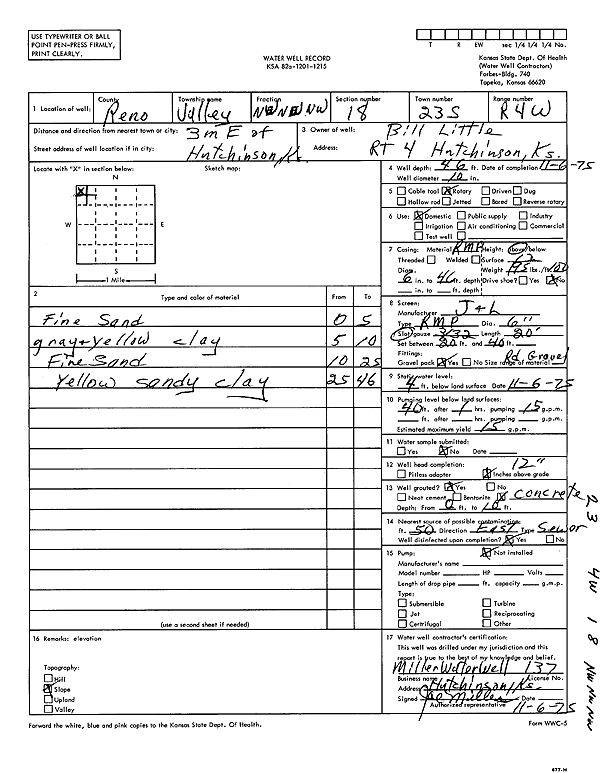 USE TYPEWRITER OR BALL
POINT PEN-PRESS FIRMLY,
PRINT CLEARLY.
WATER WELL RECORD
KSA 82a-1201-1215
T R EW sec 1/4 1/4 1/4 No.
Kansas State Dept. Of Health
(Water Well Contractors)
Forbes-Bldg. 740
Topeka, Kansas 66620
1 Location of well: County Reno Township name Valley Fraction NW NW NW Section number 18 Town number 23S Range number R4W
Distance and direction from nearest town or city: 3 m E of
Street address of well location if in city: Hutchinson, Ks.
3 Owner of well: Bill Little
Address: RT 4 Hutchinson, Ks.
Locate with "X" in section below: Sketch map:
N
X
W E
S
1 Mile
4 Well depth: 46 ft. Date of completion 11-6-75
Well diameter 10 in.
5 Cable tool X Rotary Driven Dug
Hollow rod Jetted Bored Reverse rotary
6 Use: X Domestic Public supply Industry
Irrigation Air conditioning Commercial
Test well
7 Casing: Material RMP Height: above/below
Threaded Welded Surface 12
Diam. Weight lbs./ft.
6 in. to 46 ft. depth Drive shoe? Yes X No
in. to ft. depth
2 Type and color of material From To
Fine Sand 0 5
gray+yellow clay 5 10
Fine Sand 10 25
Yellow sandy clay 25 46
(use a second sheet if needed)
8 Screen:
Manufacturer J+L
Type RMP Dia. 6"
Slot/gauze 3/32 Length 20'
Set between 20 ft. and 40 ft.
Fittings:
Gravel pack X Yes No Size range of material Rd. Gravel
9 Static water level:
4 ft. below land surface Date 11-6-75
10 Pumping level below land surfaces:
40 ft. after 1 hrs. pumping 15 g.p.m.
ft. after hrs. pumping g.p.m.
Estimated maximum yield 15 g.p.m.
11 Water sample submitted:
Yes X No Date
12 Well head completion: 12"
Pitless adapter X Inches above grade
13 Well grouted? X Yes No
Neat cement Bentonite X Concrete
Depth: From 0 ft. to 10 ft.
14 Nearest source of possible contamination:
ft. 50 Direction East Type Sewer
Well disinfected upon completion? X Yes No
15 Pump: X Not installed
Manufacturer's name
Model number HP Volts
Length of drop pipe ft. capacity g.m.p.
Type:
Submersible Turbine
Jet Reciprocating
Centrifugal Other
16 Remarks: elevation
Topography:
Hill
X Slope
Upland
Valley
17 Water well contractor's certification:
This well was drilled under my jurisdiction and this
report is true to the best of my knowledge and belief.
Miller Waterwell 137
Business name License No.
Address Hutchinson, Ks.
Signed Miller Date 11-6-75
Authorized representative
Forward the white, blue and pink copies to the Kansas State Dept. Of Health.
Form WWC-5
677-H
23 4W 18 NW NW NW